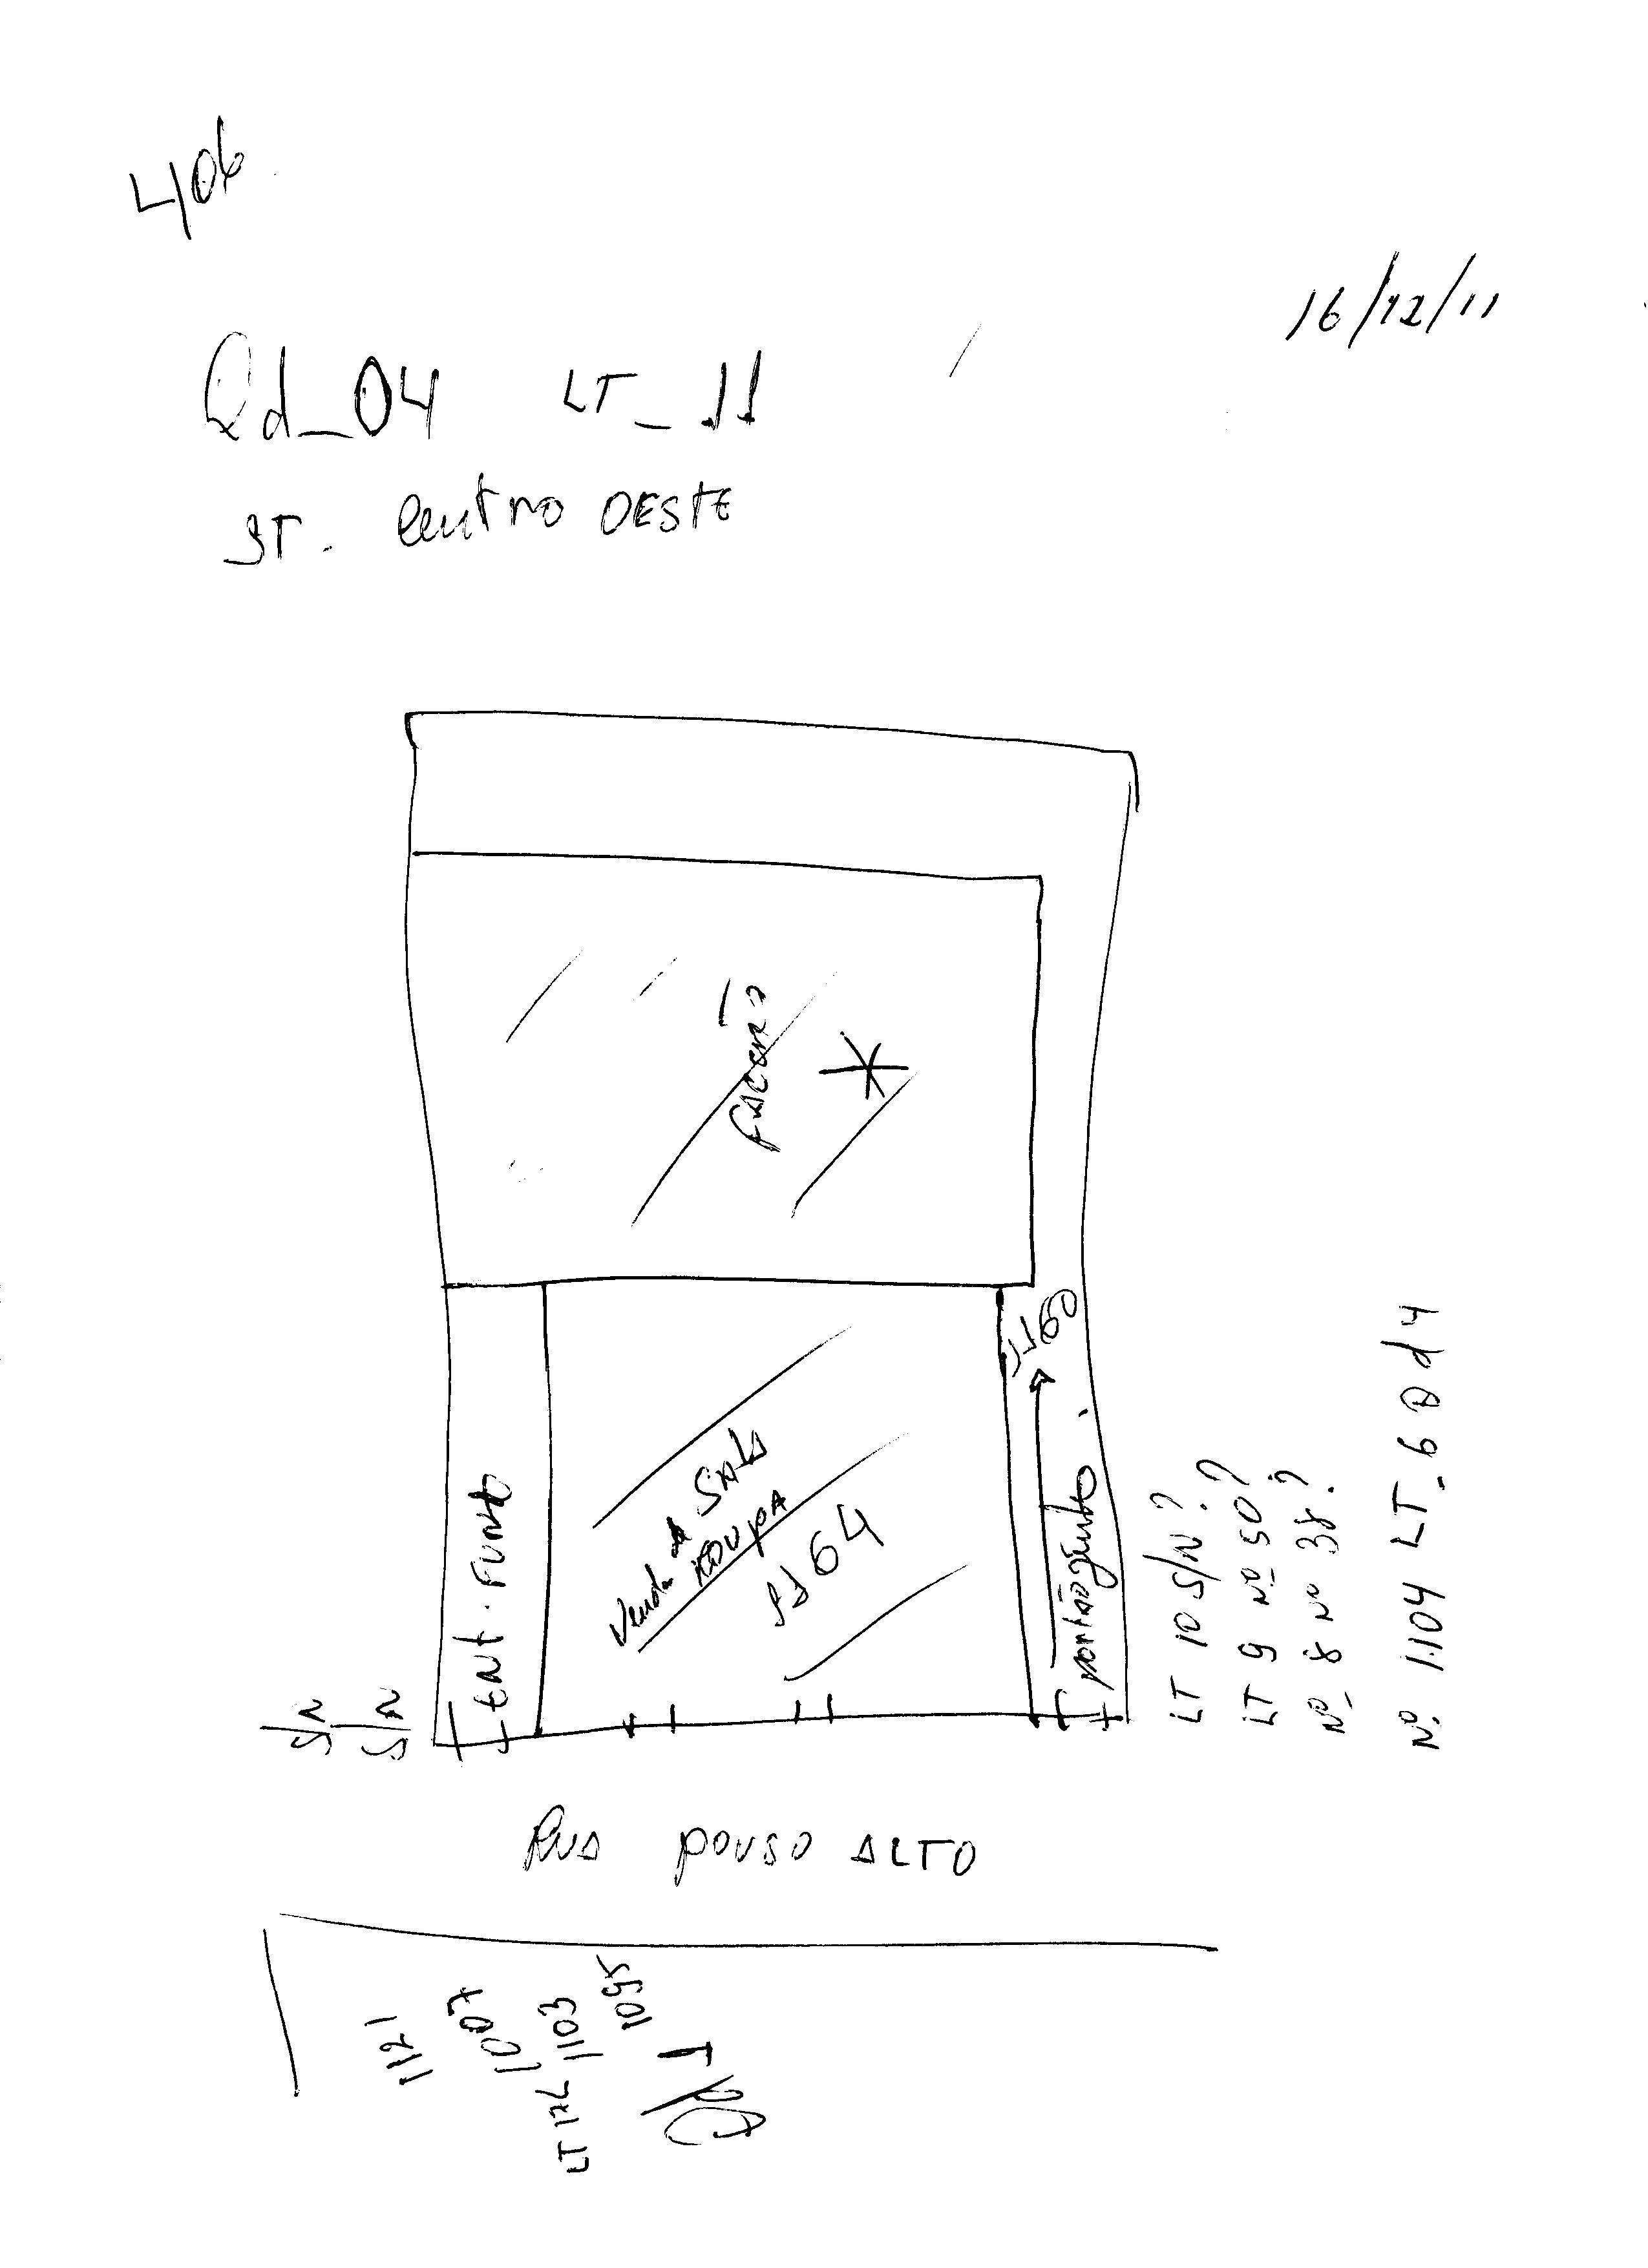 406
16/12/11
Qd_04 LT_11
ST. Centro OESTE
1160
ENT. FUNDO
Venda de Sala
ROUPA
1164
portão
S/N
S/N
LT 10 S/N?
LT 9 Nº 50?
Nº 8 Nº 38?
Nº 1104 LT_6 Qd 4
RUA POUSO ALTO
1121
1007
LT 126 1103
1095
Qd 1